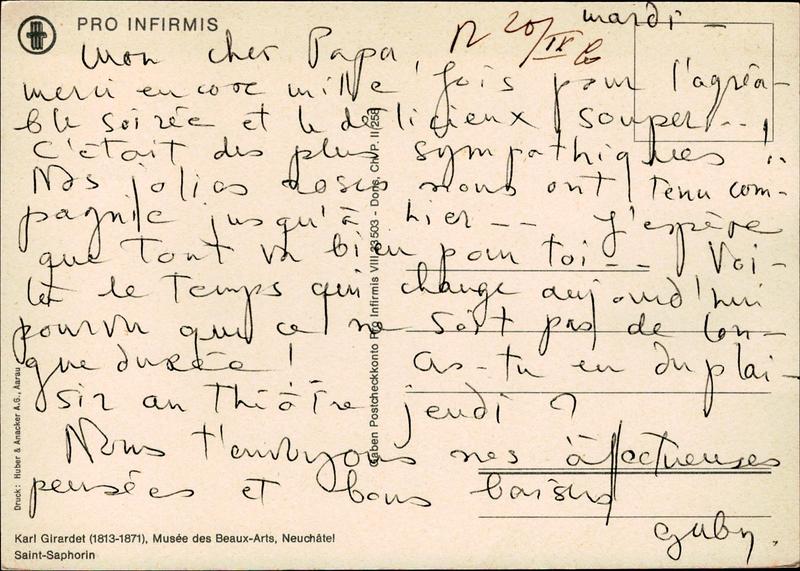 PRO INFIRMIS
mardi -
R 20/IX
Mon cher Papa,
merci encore mille fois pour l'agréa-
ble soirée et le délicieux souper - - !
C'était des plus sympathiques !
Nos jolies roses nous ont tenu com-
pagnie jusqu'à hier - - J'espère
que tout va bien pour toi - - Voi-
là le temps qui change aujourd'hui
pourvu que ce ne soit pas de lon-
gue durée ! As-tu eu du plai-
sir au théâtre jeudi ?
Nous t'envoyons nos affectueuses
pensées et bons baisers
Gaby.
Gaben Postcheckkonto Pro Infirmis VIII 23503 - Dons, Ch. P. II 258
Druck: Huber & Anacker A.G., Aarau
Karl Girardet (1813-1871), Musée des Beaux-Arts, Neuchâtel
Saint-Saphorin